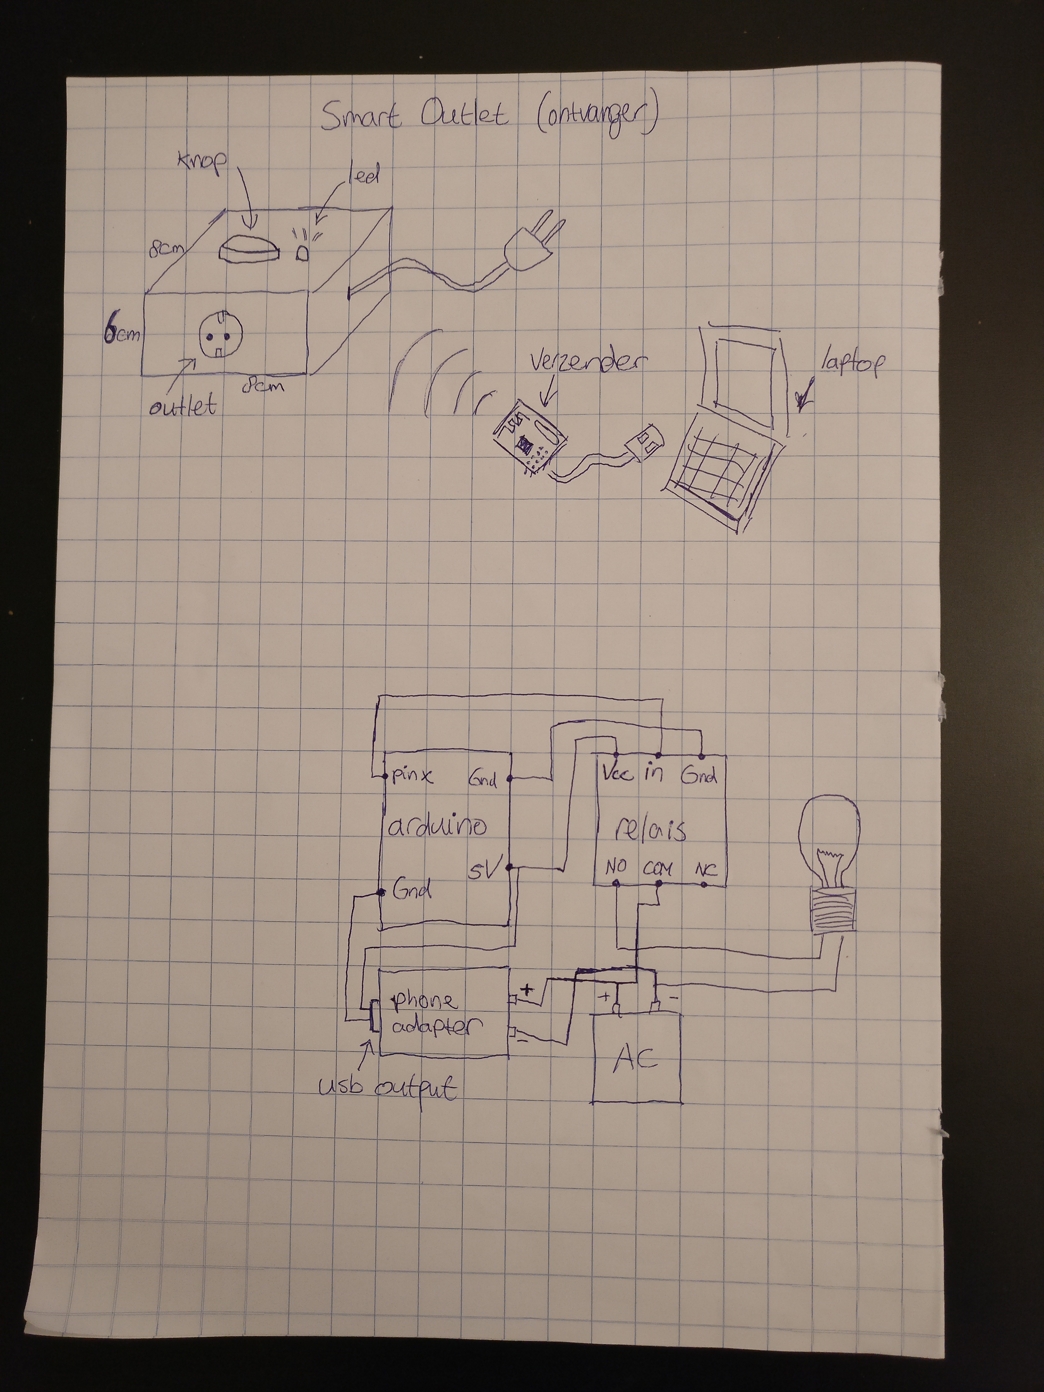 Smart Outlet (ontvanger)
knop
led
8cm
6cm
8cm
outlet
verzender
laptop
pinx Gnd
arduino
5V
Gnd
Vcc in Gnd
relais
NO COM NC
phone
adapter
+
-
+ -
AC
usb output